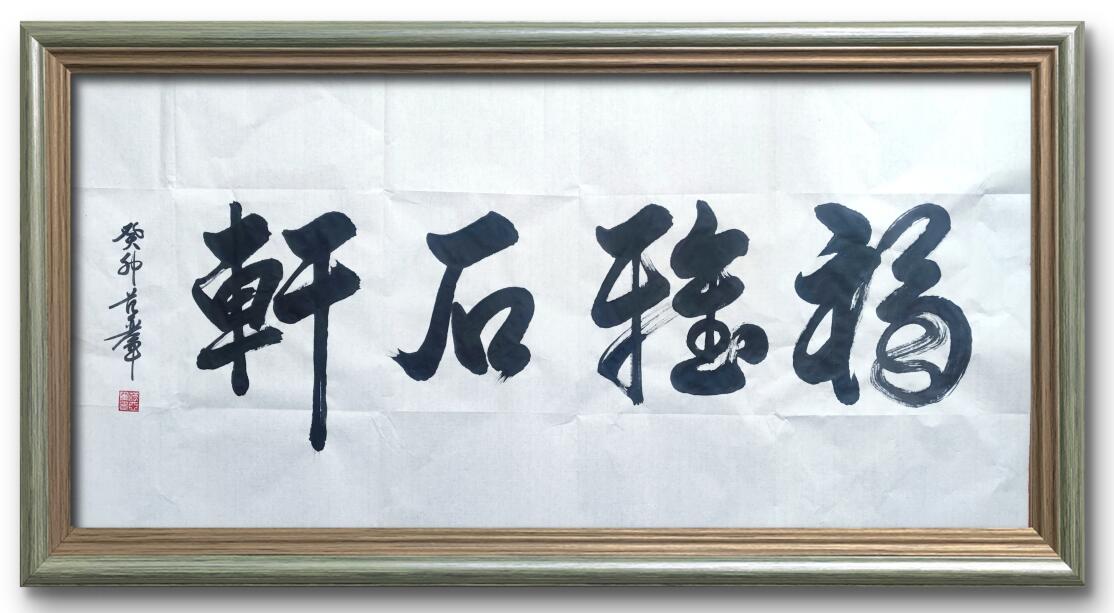 福雅石軒
癸卯